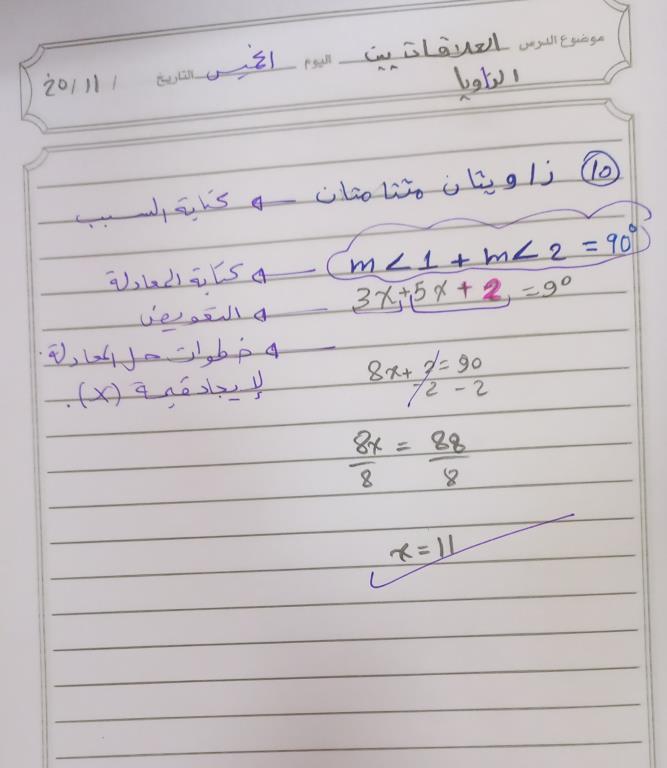 موضوع الدرس العلاقات بين اليوم الخميس التاريخ / 11 /
الزوايا
10 زاويتان متتامتان ← كتابة السبب
m<1 + m<2 = 90° ← كتابة المعادلة
3x + 5x + 2 = 90 ← التعويض
← خطوات حل المعادلة
8x + 2 = 90
لإيجاد قيمة (x).
-2 -2
8x = 88
8 8
x = 11